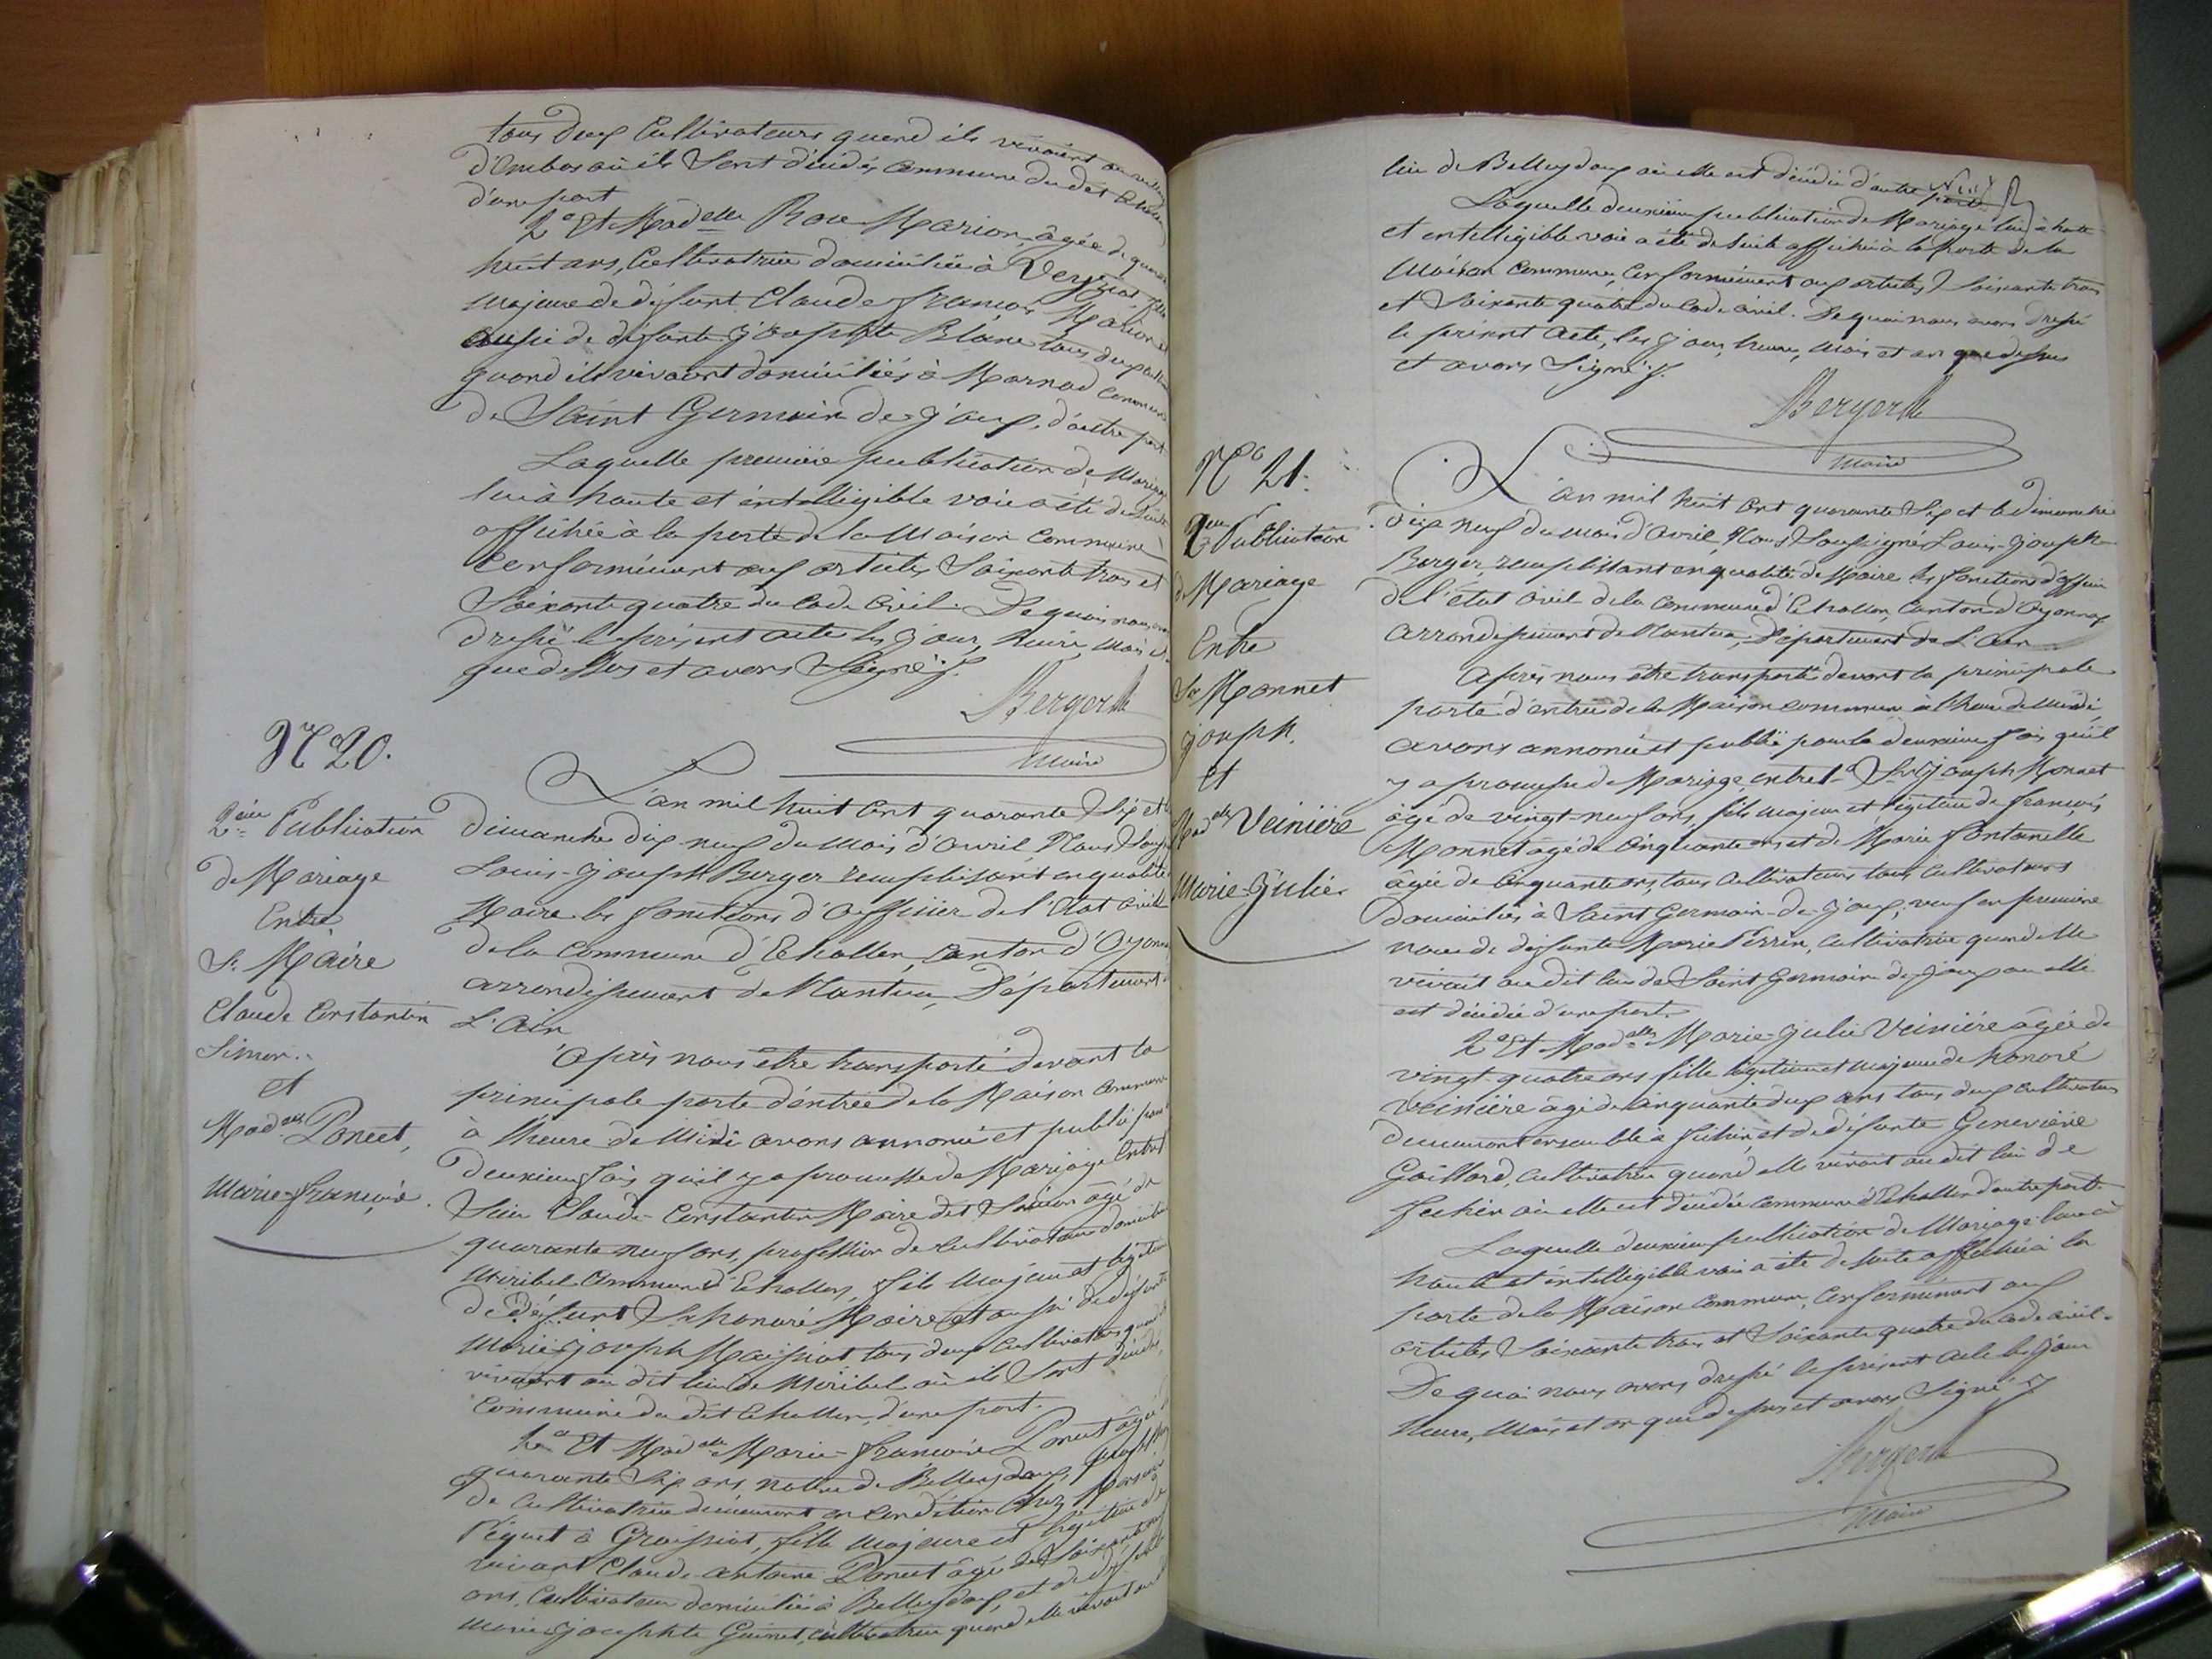 tous deux Cultivateurs quand ils vivaient au
d'Embos où ils Sont décédés Commune du dit Echallon
d'une part
2° Et Mad.elle Rose Marion âgée de
huit ans, Cultivatrice domiciliée à
majeure de défunt Claude François Marion et
aussi de défunte Josephte Blanc tous deux
quand ils vivaient domiciliés à Marnod Commune
de Saint Germain de Joux, d'autre part
Laquelle première publication de Mariage
lue à haute et intelligible voie a été de Suite
affichée à la porte de la Maison Commune
Conformément aux articles Soixante trois et
Soixante quatre du Code Civil. De quoi nous avons
dressé le présent acte les jour, heure, mois et
que dessus et avons Signé.
Berger
Maire
N° 20.
2.ème Publication
de Mariage
Entre
Sr. Maire
Claude Constantin
Simon..
et
Mad.elle Poncet,
Marie-Françoise.
L'an mil huit Cent quarante Six et le
Dimanche dix neuf du mois d'Avril, Nous
Louis-Joseph Berger remplissant en qualité
Maire les fonctions d'Officier de l'Etat Civil
de la Commune d'Echallon, Canton d'Oyonnax
arrondissement de Nantua, Département
L'Ain
Après nous être transporté devant la
principale porte d'entrée de la Maison Commune
à l'heure de Midi avons annoncé et publié pour
deuxième fois qu'il y a promesse de Mariage Entre
Sieur Claude-Constantin Maire dit Simon âgé de
quarante neuf ans, profession de cultivateur domicilié
Miribel Commune d'Echallon, fils Majeur et légitime
de Défunt Sr. honoré Maire et aussi de défunte
Marie-Joseph Maissiat tous deux Cultivateurs quand
vivaient au dit lieu de Miribel où ils Sont décédés,
Commune du dit Echallon, d'une part.
2° Et Mad.elle Marie-Françoise Poncet âgée de
quarante Six ans, native de Belleydoux,
de Cultivatrice demeurant en Condition chez
à Groissiat, fille majeure et légitime de
vivant Claude-Antoine Poncet âgé de Soixante
ans, Cultivateur domicilié à Belleydoux, et de défunte
Marie-Josephte Guinet, cultivatrice quand elle vivait au
lieu de Belleydoux où elle est décédée d'autre part
Laquelle deuxième publication de Mariage lue à haute
et intelligible voie a été de Suite affichée à la Porte de la
Maison Commune, Conformément aux articles Soixante trois
et Soixante quatre du Code Civil. De quoi nous avons dressé
le présent Acte, les jour, heure, mois et an que dessus
et avons Signé.
Berger
Maire
N° 21.
2.ème Publication
de Mariage
Entre
Sr Monnet
Joseph.
et
Mad.elle Veinière
Marie-Julie.
L'an mil huit Cent quarante Six et le dimanche
dix neuf du mois d'Avril, Nous Soussigné Louis-Joseph
Berger, remplissant en qualité de Maire les fonctions d'officier
de l'état Civil de la Commune d'Echallon, Canton d'Oyonnax
arrondissement de Nantua, Département de L'Ain
Après nous être transporté devant la principale
porte d'entrée de la Maison commune à l'heure de midi
avons annoncé et publié pour la deuxième fois qu'il
y a promesse de Mariage, entre 1° Sr. Joseph Monnet
âgé de vingt-neuf ans, fils majeur et légitime de François
Monnet âgé de Cinquante ans et de Marie Fontanelle
âgée de Cinquante ans, tous Cultivateurs tous Cultivateurs
domiciliés à Saint Germain-de-Joux, veuf en première
noce de défunte Marie Perrin, Cultivatrice quand elle
vivait au dit lieu de Saint Germain de Joux où elle
est décédée d'une part.
2° Et Mad.elle Marie-Julie Veinière âgée de
vingt-quatre ans fille légitime et majeure de honoré
Veinière âgé de Cinquante deux ans tous deux cultivateurs
demeurant ensemble à Juhin, et de défunte Geneviève
Gaillard, Cultivatrice quand elle vivait au dit lieu de
où elle est décédée commune d'Echallon d'autre part.
Laquelle deuxième publication de Mariage lue à
haute et intelligible voie a été de Suite affichée à la
porte de la Maison Commune, Conformément aux
articles Soixante trois et Soixante quatre du Code Civil.
De quoi nous avons dressé le présent Acte les jour
heure, Mois et an que dessus et avons Signé.
Berger
Maire